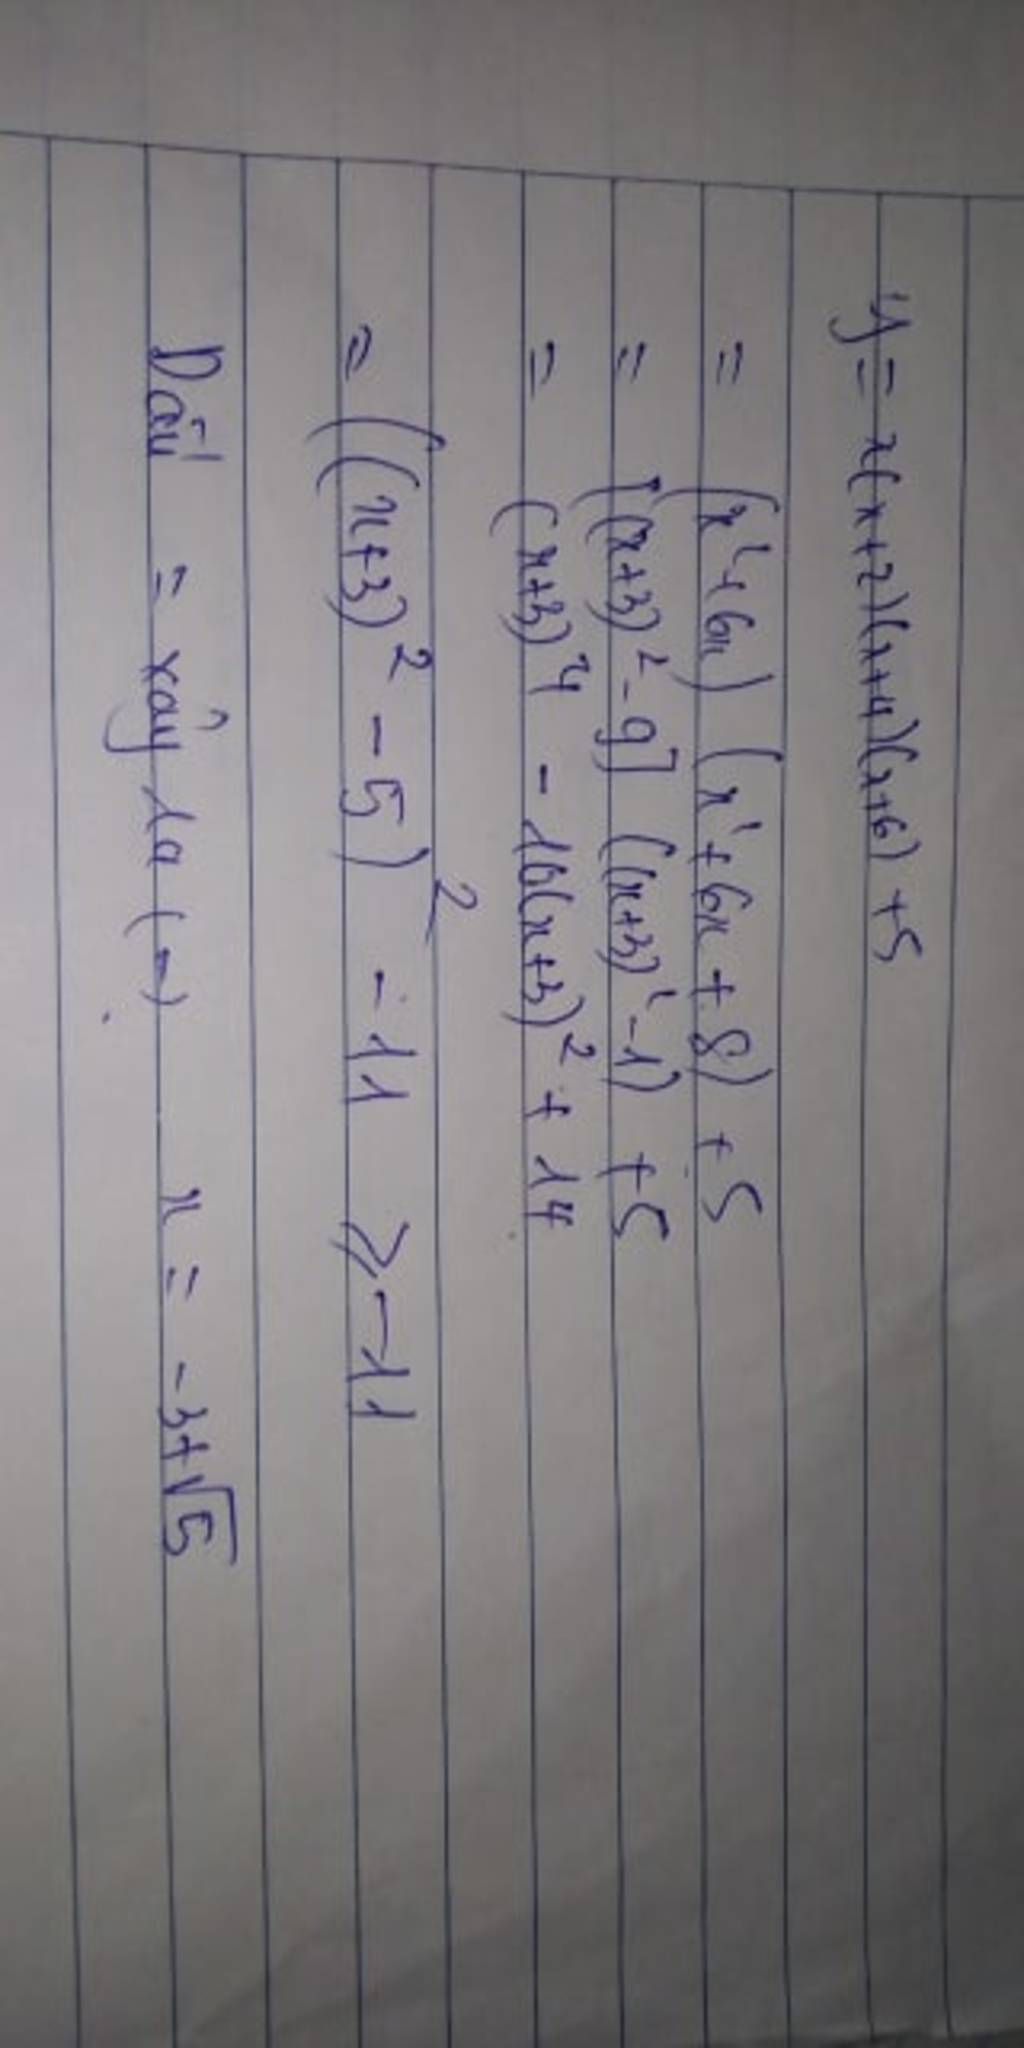 y = x(x+2)(x+4)(x+6) +5
= (x²+6x) (x²+6x+8) +5
= [(x+3)²-9] ((x+3)²-1) +5
= (x+3)⁴ - 10(x+3)² + 14
= ((x+3)² - 5)² - 11 ≥ -11
Dấu = xảy ra (=) x = -3+√5